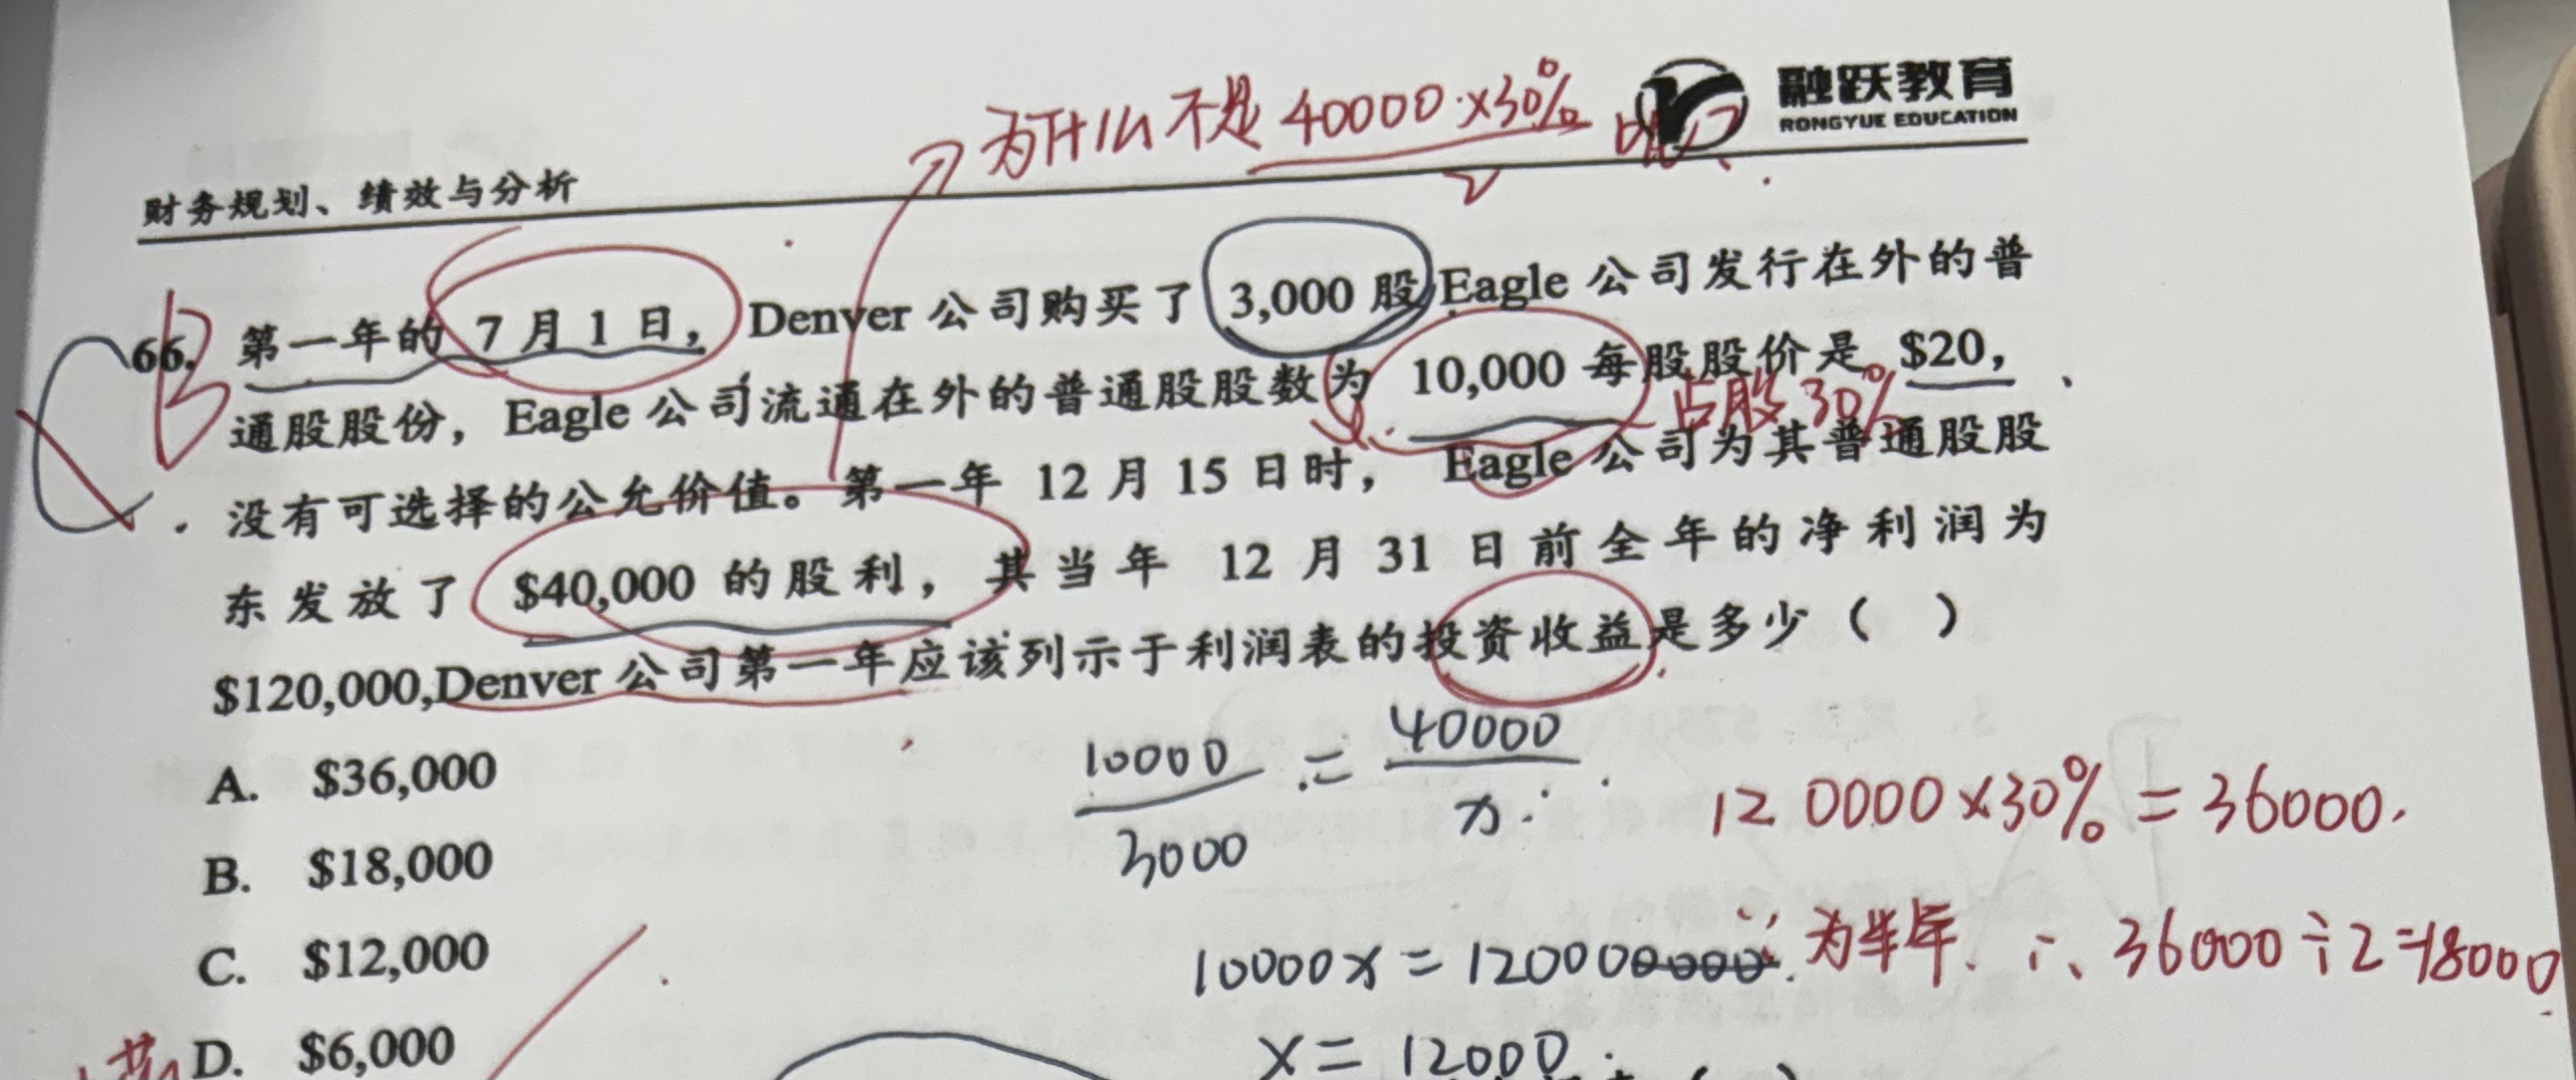 为什么不是 40000×30%
融跃教育
RONGYUE EDUCATION
财务规划、绩效与分析
B
66. 第一年的 7 月 1 日， Denver 公司购买了 3,000 股 Eagle 公司发行在外的普
通股股份，Eagle 公司流通在外的普通股股数为 10,000 每股股价是 $20，
占股 30%
没有可选择的公允价值。第一年 12 月 15 日时， Eagle 公司为其普通股股
东发放了 $40,000 的股利，其当年 12 月 31 日前全年的净利润为
$120,000,Denver 公司第一年应该列示于利润表的投资收益是多少（ ）
A. $36,000
B. $18,000
C. $12,000
D. $6,000
10000/3000 = 40000/x
120000×30% = 36000.
10000x = 12000
∵ 为半年. ∴ 36000÷2=18000
x = 12000